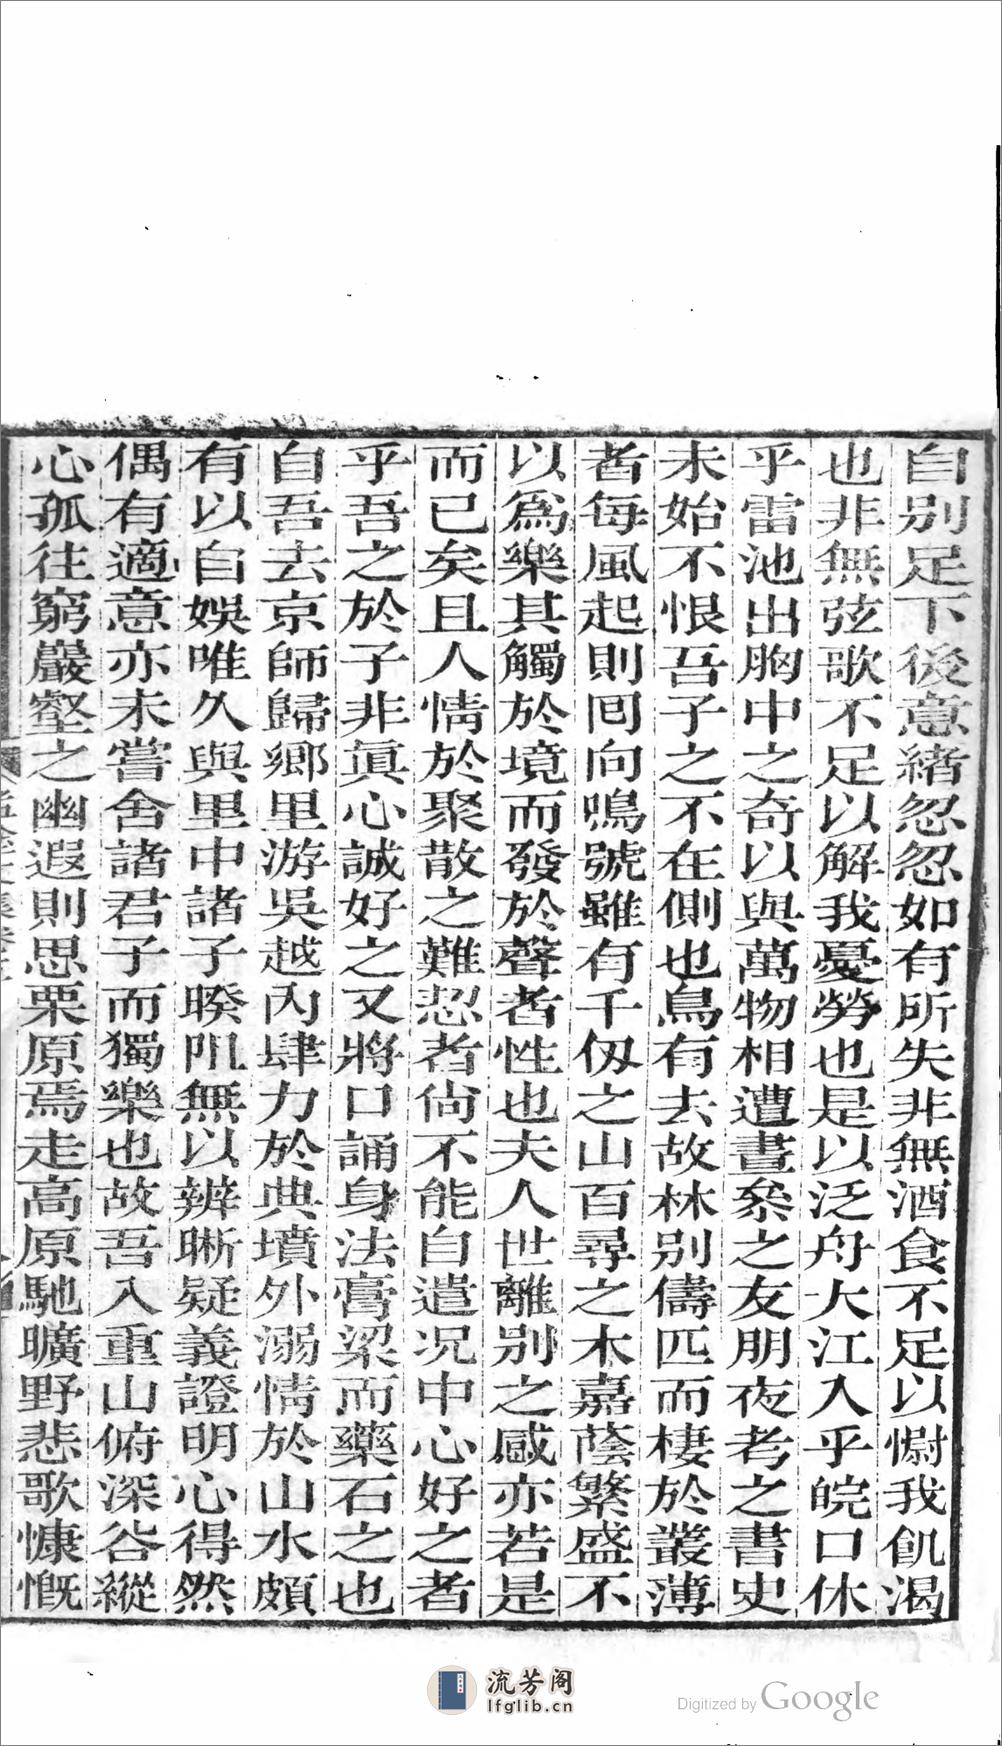 自別足下後意緒忽忽如有所失非無酒食不足以慰我飢渴
也非無弦歌不足以解我憂勞也是以泛舟大江入乎皖口休
乎雷池出胸中之奇以與萬物相遭晝叅之友朋夜考之書史
未始不恨吾子之不在側也鳥有去故林別儔匹而棲於叢薄
者每風起則囘向鳴號雖有千仭之山百尋之木嘉蔭繁盛不
以爲樂其觸於境而發於聲者性也夫人世離別之感亦若是
而已矣且人情於聚散之難恝者尙不能自遣况中心好之者
乎吾之於子非眞心誠好之又將口誦身法膏梁而藥石之也
自吾去京師歸鄉里游吳越內肆力於典墳外溺情於山水頗
有以自娛唯久與里中諸子暌阻無以辨晰疑義證明心得然
偶有適意亦未嘗舍諸君子而獨樂也故吾入重山俯深谷縱
心孤往窮巖壑之幽遐則思栗原焉走高原馳曠野悲歌慷慨
流芳阁
lfglib.cn
Digitized by Google